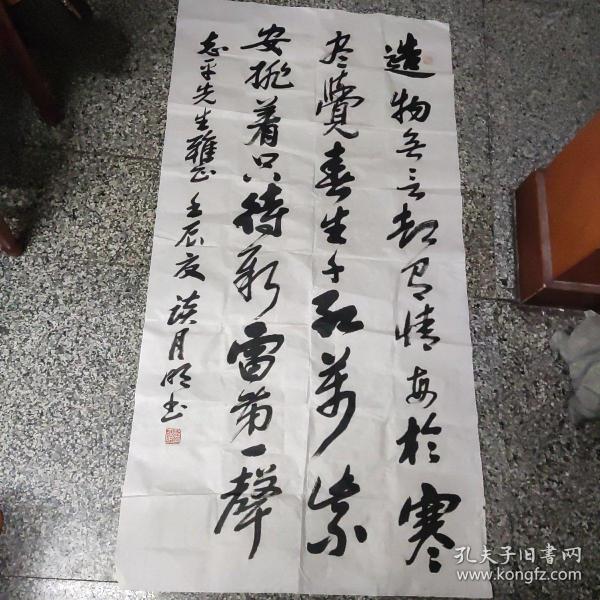 造物無言却有情每於寒
尽覺春生千紅萬紫
安排着只待新雷第一聲
志平先生雅正 壬辰夏 談月明书
孔夫子旧书网
www.kongfz.com